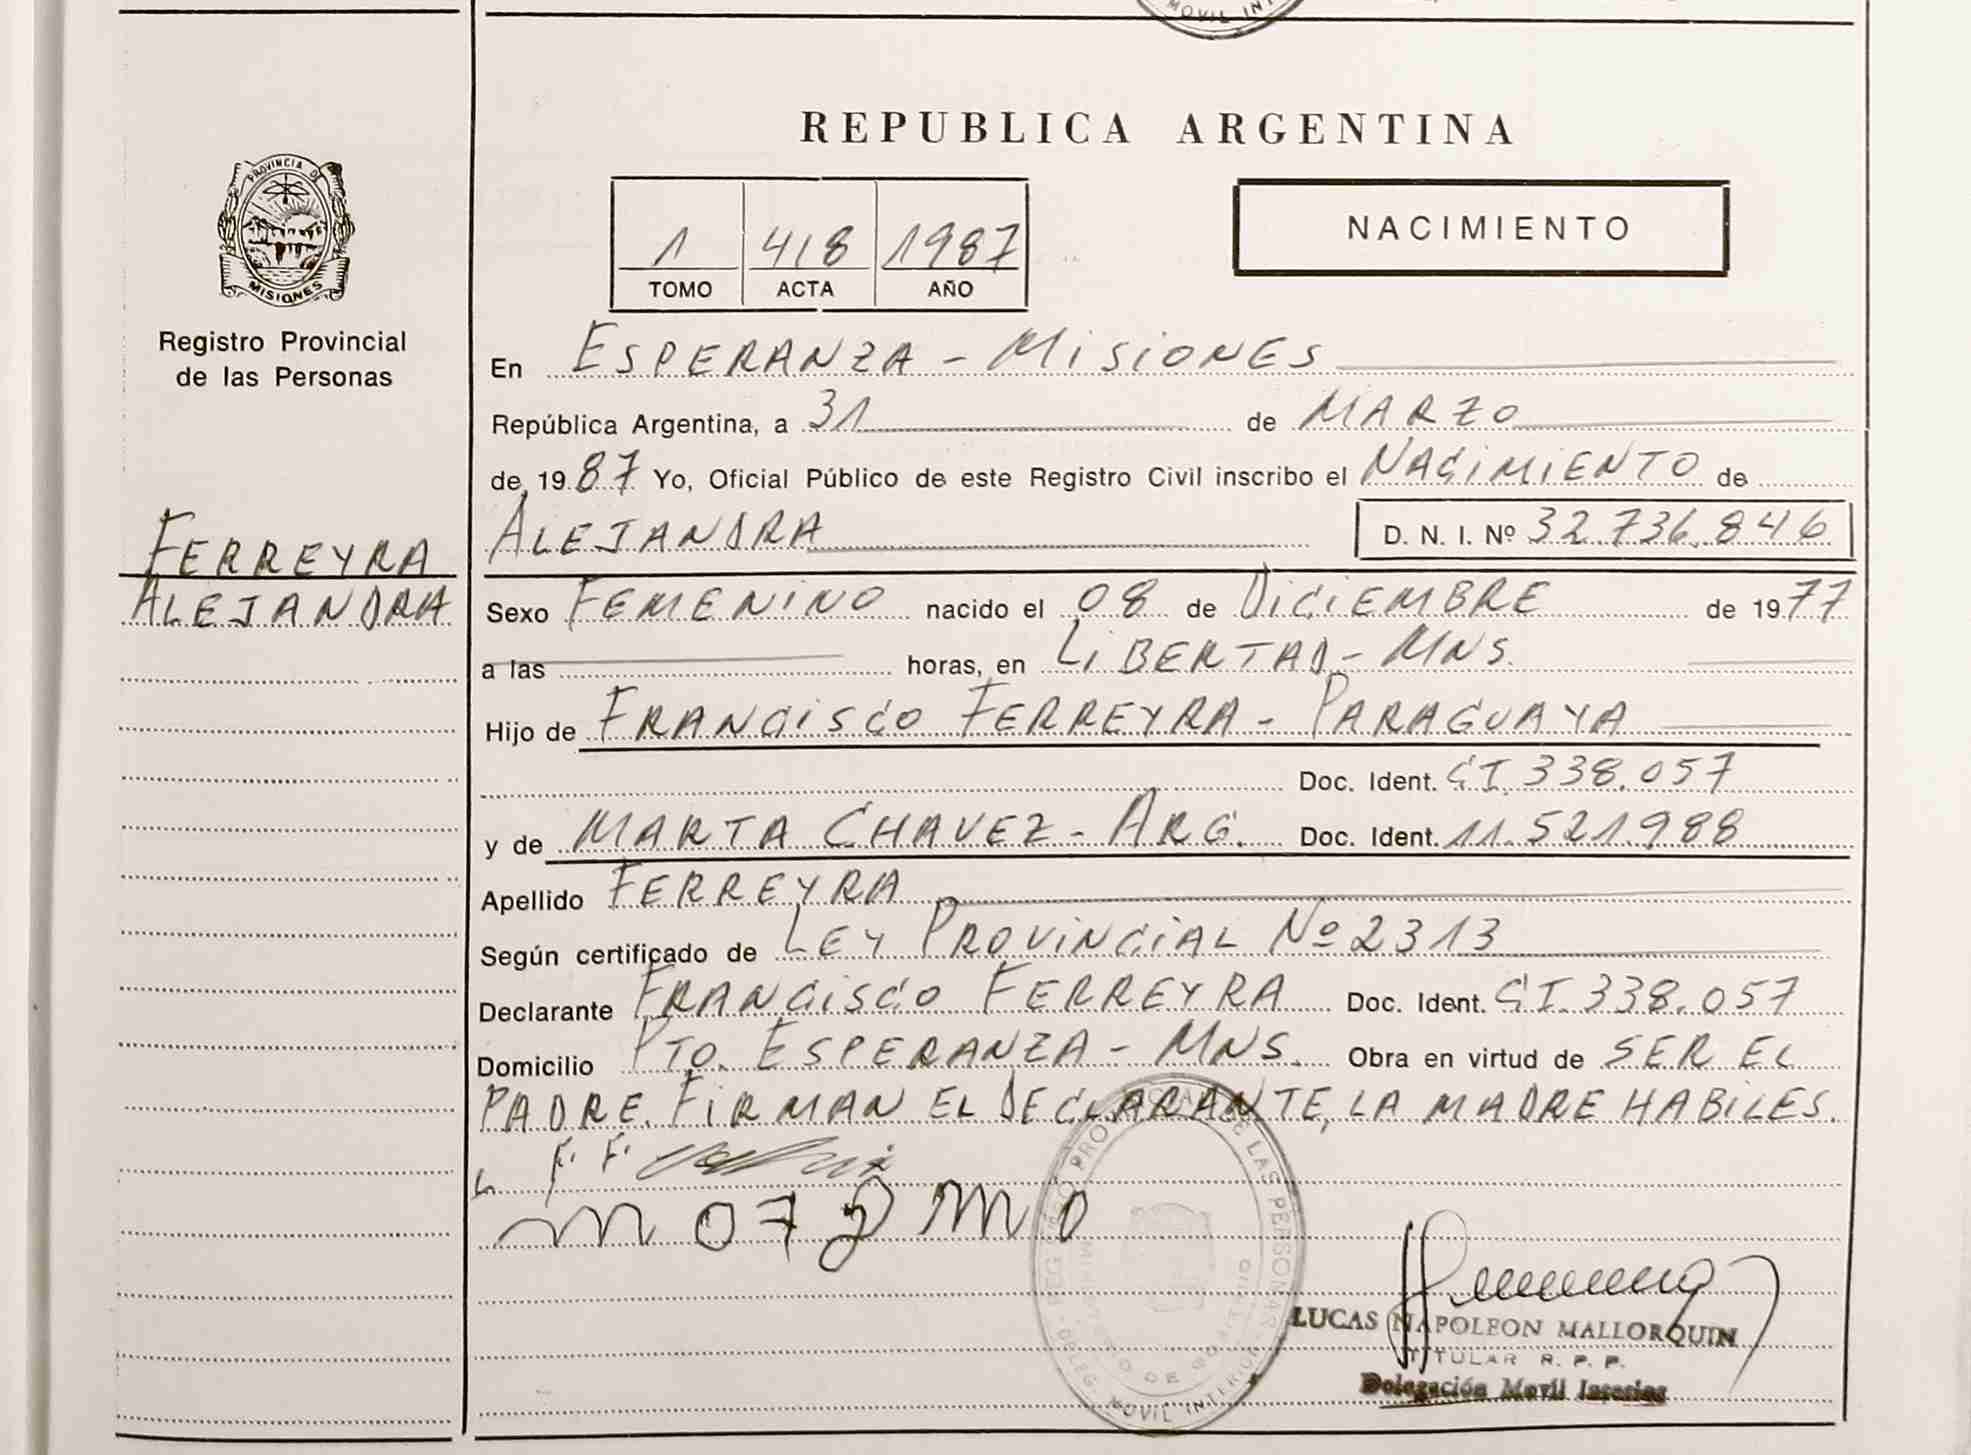 MOVIL INT
REPUBLICA ARGENTINA
PROVINCIA DE
MISIONES
Registro Provincial
de las Personas
1 418 1987
TOMO ACTA AÑO
NACIMIENTO
En ESPERANZA - MISIONES
República Argentina, a 31 de MARZO
de 19 87 Yo, Oficial Público de este Registro Civil inscribo el NACIMIENTO de
ALEJANDRA D. N. I. Nº 32.736.846
FERREYRA
ALEJANDRA
Sexo FEMENINO nacido el 08 de DICIEMBRE de 19 77
a las horas, en LIBERTAD - MNS.
Hijo de FRANCISCO FERREYRA - PARAGUAYA
Doc. Ident. CI. 338.057
y de MARTA CHAVEZ - ARG. Doc. Ident. 11.521.988
Apellido FERREYRA
Según certificado de LEY PROVINCIAL Nº 2313
Declarante FRANCISCO FERREYRA Doc. Ident. CI. 338.057
Domicilio PTO. ESPERANZA - MNS. Obra en virtud de SER EL
PADRE. FIRMAN EL DECLARANTE, LA MADRE HABILES.
F. F.
REGISTRO PROVINCIAL DE LAS PERSONAS
MINISTERIO DE GOBIERNO
DELEG. MOVIL INTERIOR
LUCAS NAPOLEON MALLORQUIN
TITULAR R. P. P.
Delegación Movil Interior